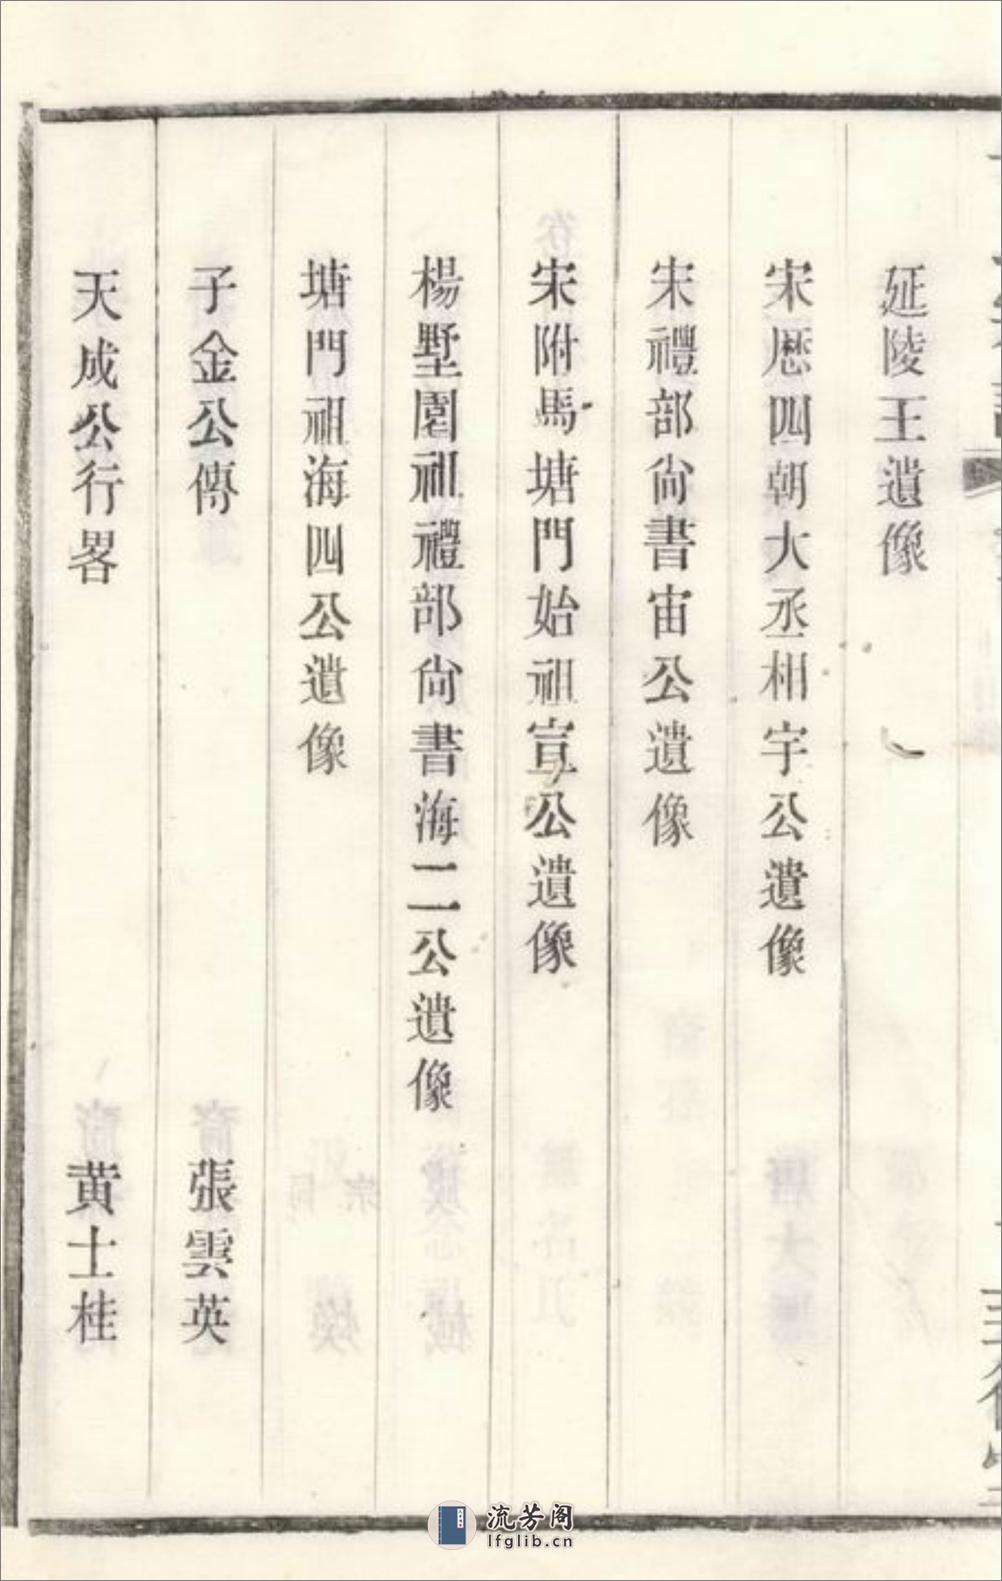 延陵王遺像
宋歷四朝大丞相宇公遺像
宋禮部尙書宙公遺像
宋附馬塘門始祖宣公遺像
楊墅園祖禮部尙書海二公遺像
塘門祖海四公遺像
子金公傳 張雲英
天成公行畧 黄士桂
流芳阁
lfglib.cn